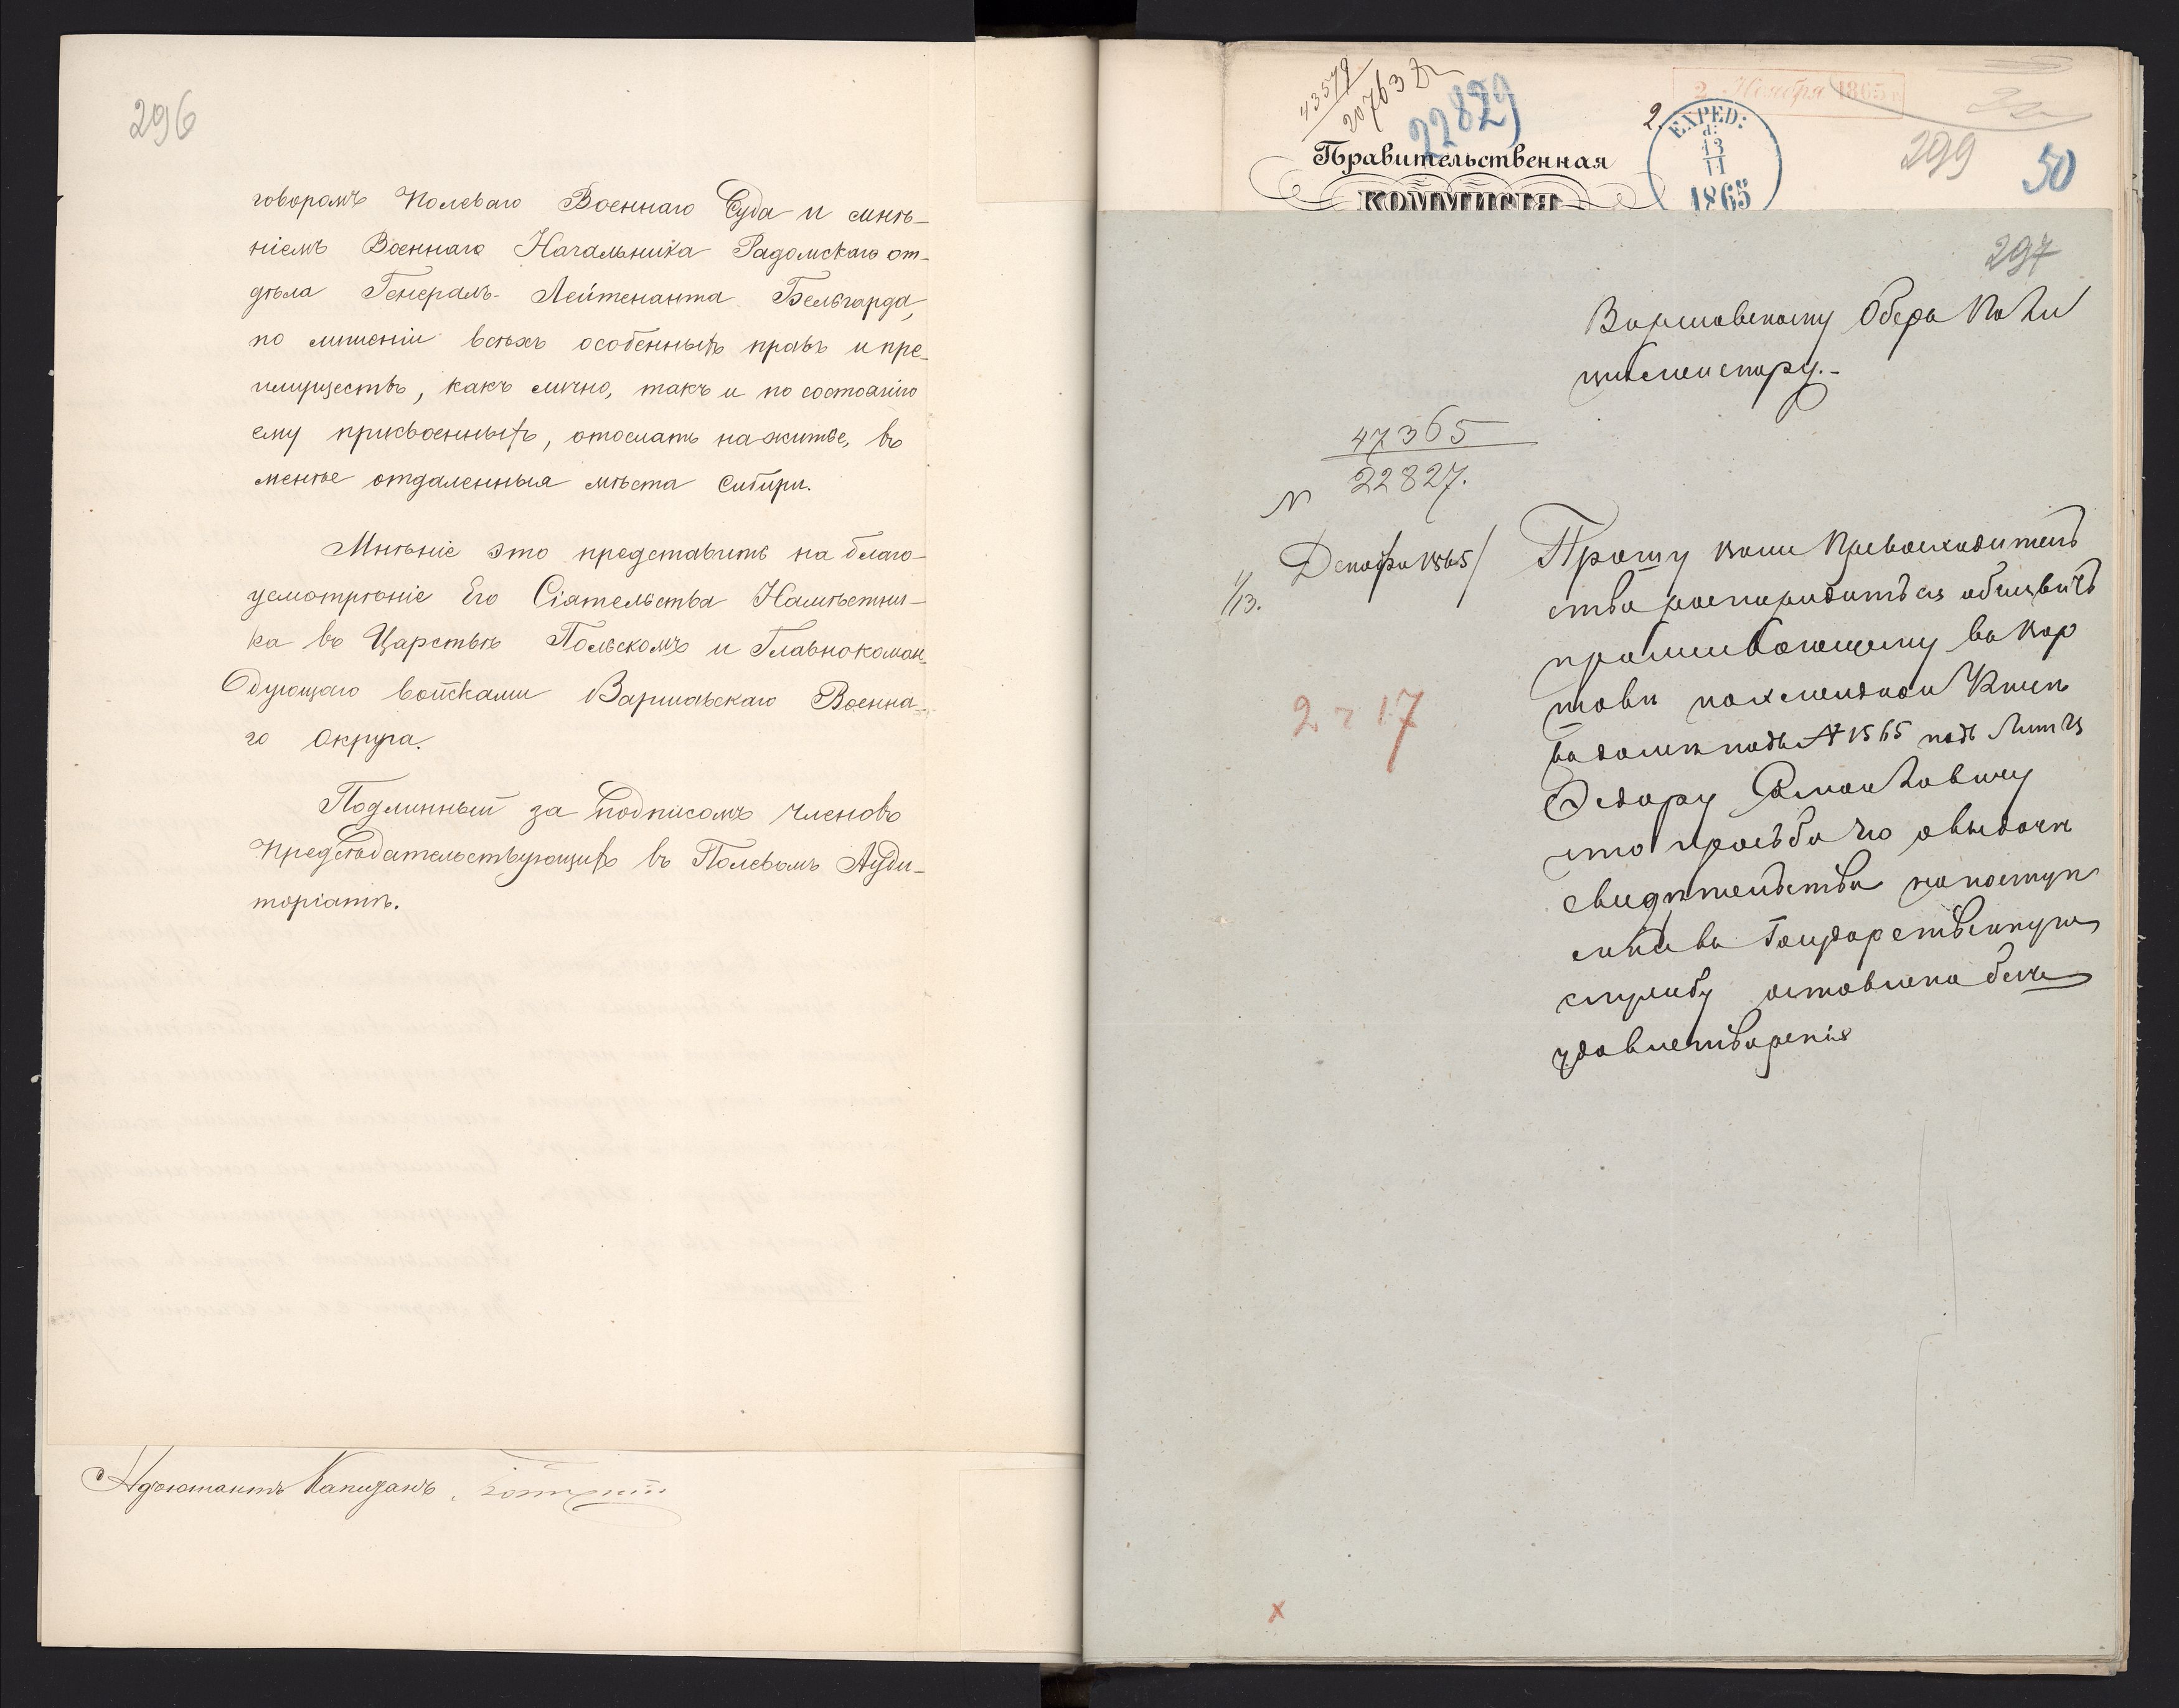 296
говоромъ Полеваго Военнаго Суда и мнѣ-
ніемъ Военнаго Начальника Радомскаго от-
дѣла Генералъ-Лейтенанта Бельгарда,
по лишеніи всѣхъ особенныхъ правъ и пре-
имуществъ, какъ лично, такъ и по состоянію
ему присвоенныхъ, отослать на житье, въ
менѣе отдаленныя мѣста Сибири.
Мнѣніе это представить на благо-
усмотрѣніе Его Сіятельства Намѣстни-
ка въ Царствѣ Польскомъ и Главнокоман-
дующаго войсками Варшавскаго Военна-
го Округа.
Подлинный за подписомъ членовъ
Предсѣдательствующихъ въ Полевомъ Ауди-
торіатѣ.
Адъютантъ Капитанъ
43579
20763
22829
Правительственная
КОММИСІЯ
2 Ноября 1865 г
2.
EXPED:
d:
13
11
1865
299
50
297
Варшавскому Оберъ Поли
цмейстеру.-
47365
22827.
N
1/13. Декабря 1865
Прошу ваше Превосходитель
ство распорядиться объявить
проживающему въ
домѣ подъ N 1565 подъ Лит
что просьба его о выдачѣ
свидѣтельства на поступ
въ Государственную
службу оставлена безъ
удовлетворенія
2 г 17
х